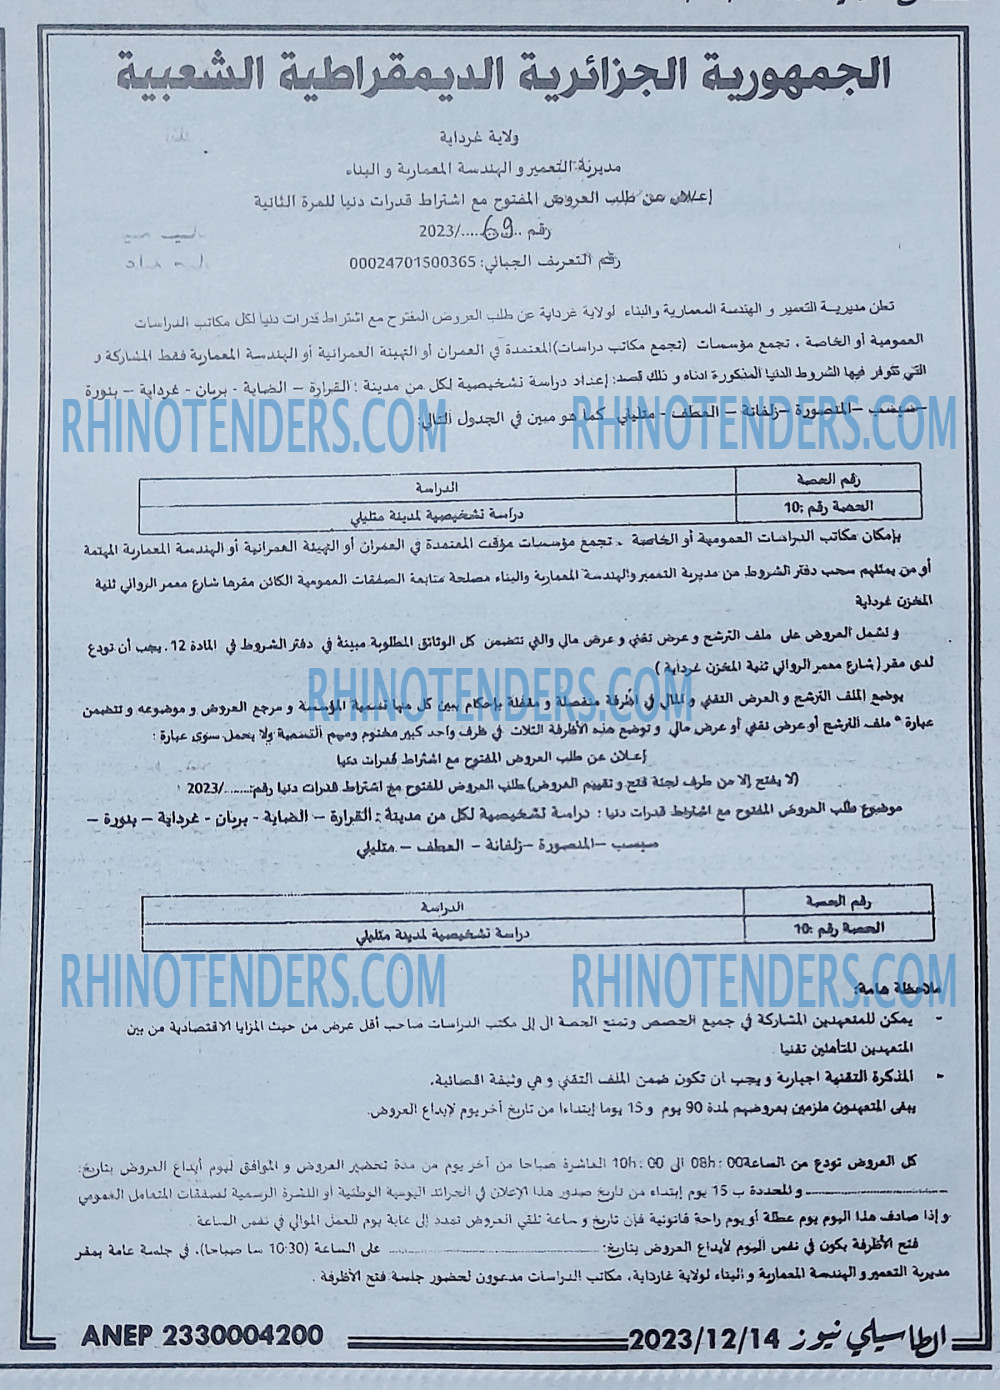 الجمهورية الجزائرية الديمقراطية الشعبية
ولاية غرداية
مديرية التعمير و الهندسة المعمارية و البناء
إعلان عن طلب العروض المفتوح مع اشتراط قدرات دنيا للمرة الثانية
رقم ..69...../2023
رقم التعريف الجبائي: 00024701500365
تعلن مديرية التعمير و الهندسة المعمارية والبناء لولاية غرداية عن طلب العروض المفتوح مع اشتراط قدرات دنيا لكل مكاتب الدراسات
العمومية أو الخاصة ، تجمع مؤسسات (تجمع مكاتب دراسات)المعتمدة في العمران أو التهيئة العمرانية أو الهندسة المعمارية فقط المشاركة و
التي تتوفر فيها الشروط الدنيا المذكورة ادناه و ذلك قصد: إعداد دراسة تشخيصية لكل من مدينة : القرارة – الضاية - بريان - غرداية – بنورة
–سبسب –المنصورة –زلفانة – العطف - متليلي كما هو مبين في الجدول التالي:
رقم الحصة الدراسة
الحصة رقم :10 دراسة تشخيصية لمدينة متليلي
بإمكان مكاتب الدراسات العمومية أو الخاصة ، تجمع مؤسسات مؤقت المعتمدة في العمران أو التهيئة العمرانية أو الهندسة المعمارية المهتمة
أو من يمثلهم سحب دفتر الشروط من مديرية التعمير والهندسة المعمارية والبناء مصلحة متابعة الصفقات العمومية الكائن مقرها شارع معمر الرواني ثنية
المخزن غرداية
و تشمل العروض على ملف الترشح و عرض تقني و عرض مالي والتي تتضمن كل الوثائق المطلوبة مبينة في دفتر الشروط في المادة 12. يجب أن تودع
لدى مقر ( شارع معمر الرواني ثنية المخزن غرداية )
يوضع الملف الترشح و العرض التقني و المالي في اظرفة منفصلة و مقفلة بإحكام يبين كل منها تسمية المؤسسة و مرجع العروض و موضوعه و تتضمن
عبارة " ملف الترشح أو عرض تقني أو عرض مالي و توضع هذه الأظرفة الثلاث في ظرف واحد كبير مختوم ومبهم التسمية ولا يحمل سوى عبارة :
إعلان عن طلب العروض المفتوح مع اشتراط قدرات دنيا
(لا يفتح إلا من طرف لجنة فتح و تقييم العروض) طلب العروض المفتوح مع اشتراط قدرات دنيا رقم:......../2023
موضوع طلب العروض المفتوح مع اشتراط قدرات دنيا : دراسة تشخيصية لكل من مدينة : القرارة – الضاية - بريان - غرداية – بنورة –
سبسب –المنصورة –زلفانة - العطف – متليلي
رقم الحصة الدراسة
الحصة رقم :10 دراسة تشخيصية لمدينة متليلي
ملاحظة هامة:
- يمكن للمتعهدين المشاركة في جميع الحصص وتمنح الحصة ال إلى مكتب الدراسات صاحب أقل عرض من حيث المزايا الاقتصادية من بين
المتعهدين المتأهلين تقنيا
- المذكرة التقنية اجبارية و يجب ان تكون ضمن الملف التقني و هي وثيقة اقصائية.
يبقى المتعهدون ملزمين بعروضهم لمدة 90 يوم و 15 يوما إبتداءا من تاريخ أخر يوم لإيداع العروض.
كل العروض تودع من الساعة 08h:00 الى 10h:00 العاشرة صباحا من أخر يوم من مدة تحضير العروض و الموافق ليوم أيداع العروض بتاريخ:
.................... و المحددة ب 15 يوم إبتداء من تاريخ صدور هذا الإعلان في الجرائد اليومية الوطنية أو النشرة الرسمية لصفقات المتعامل العمومي
و إذا صادف هذا اليوم يوم عطلة أو يوم راحة قانونية فإن تاريخ و ساعة تلقي العروض تمدد إلى غاية يوم للعمل الموالي في نفس الساعة .
فتح الأظرفة يكون في نفس اليوم لأيداع العروض بتاريخ: .................... على الساعة (10:30 سا صباحا)، في جلسة عامة بمقر
مديرية التعمير و الهندسة المعمارية و البناء لولاية غارداية، مكاتب الدراسات مدعوون لحضور جلسة فتح الأظرفة .
الطاسيلي نيوز 2023/12/14
ANEP 2330004200
RHINOTENDERS.COM
RHINOTENDERS.COM
RHINOTENDERS.COM
RHINOTENDERS.COM
RHINOTENDERS.COM